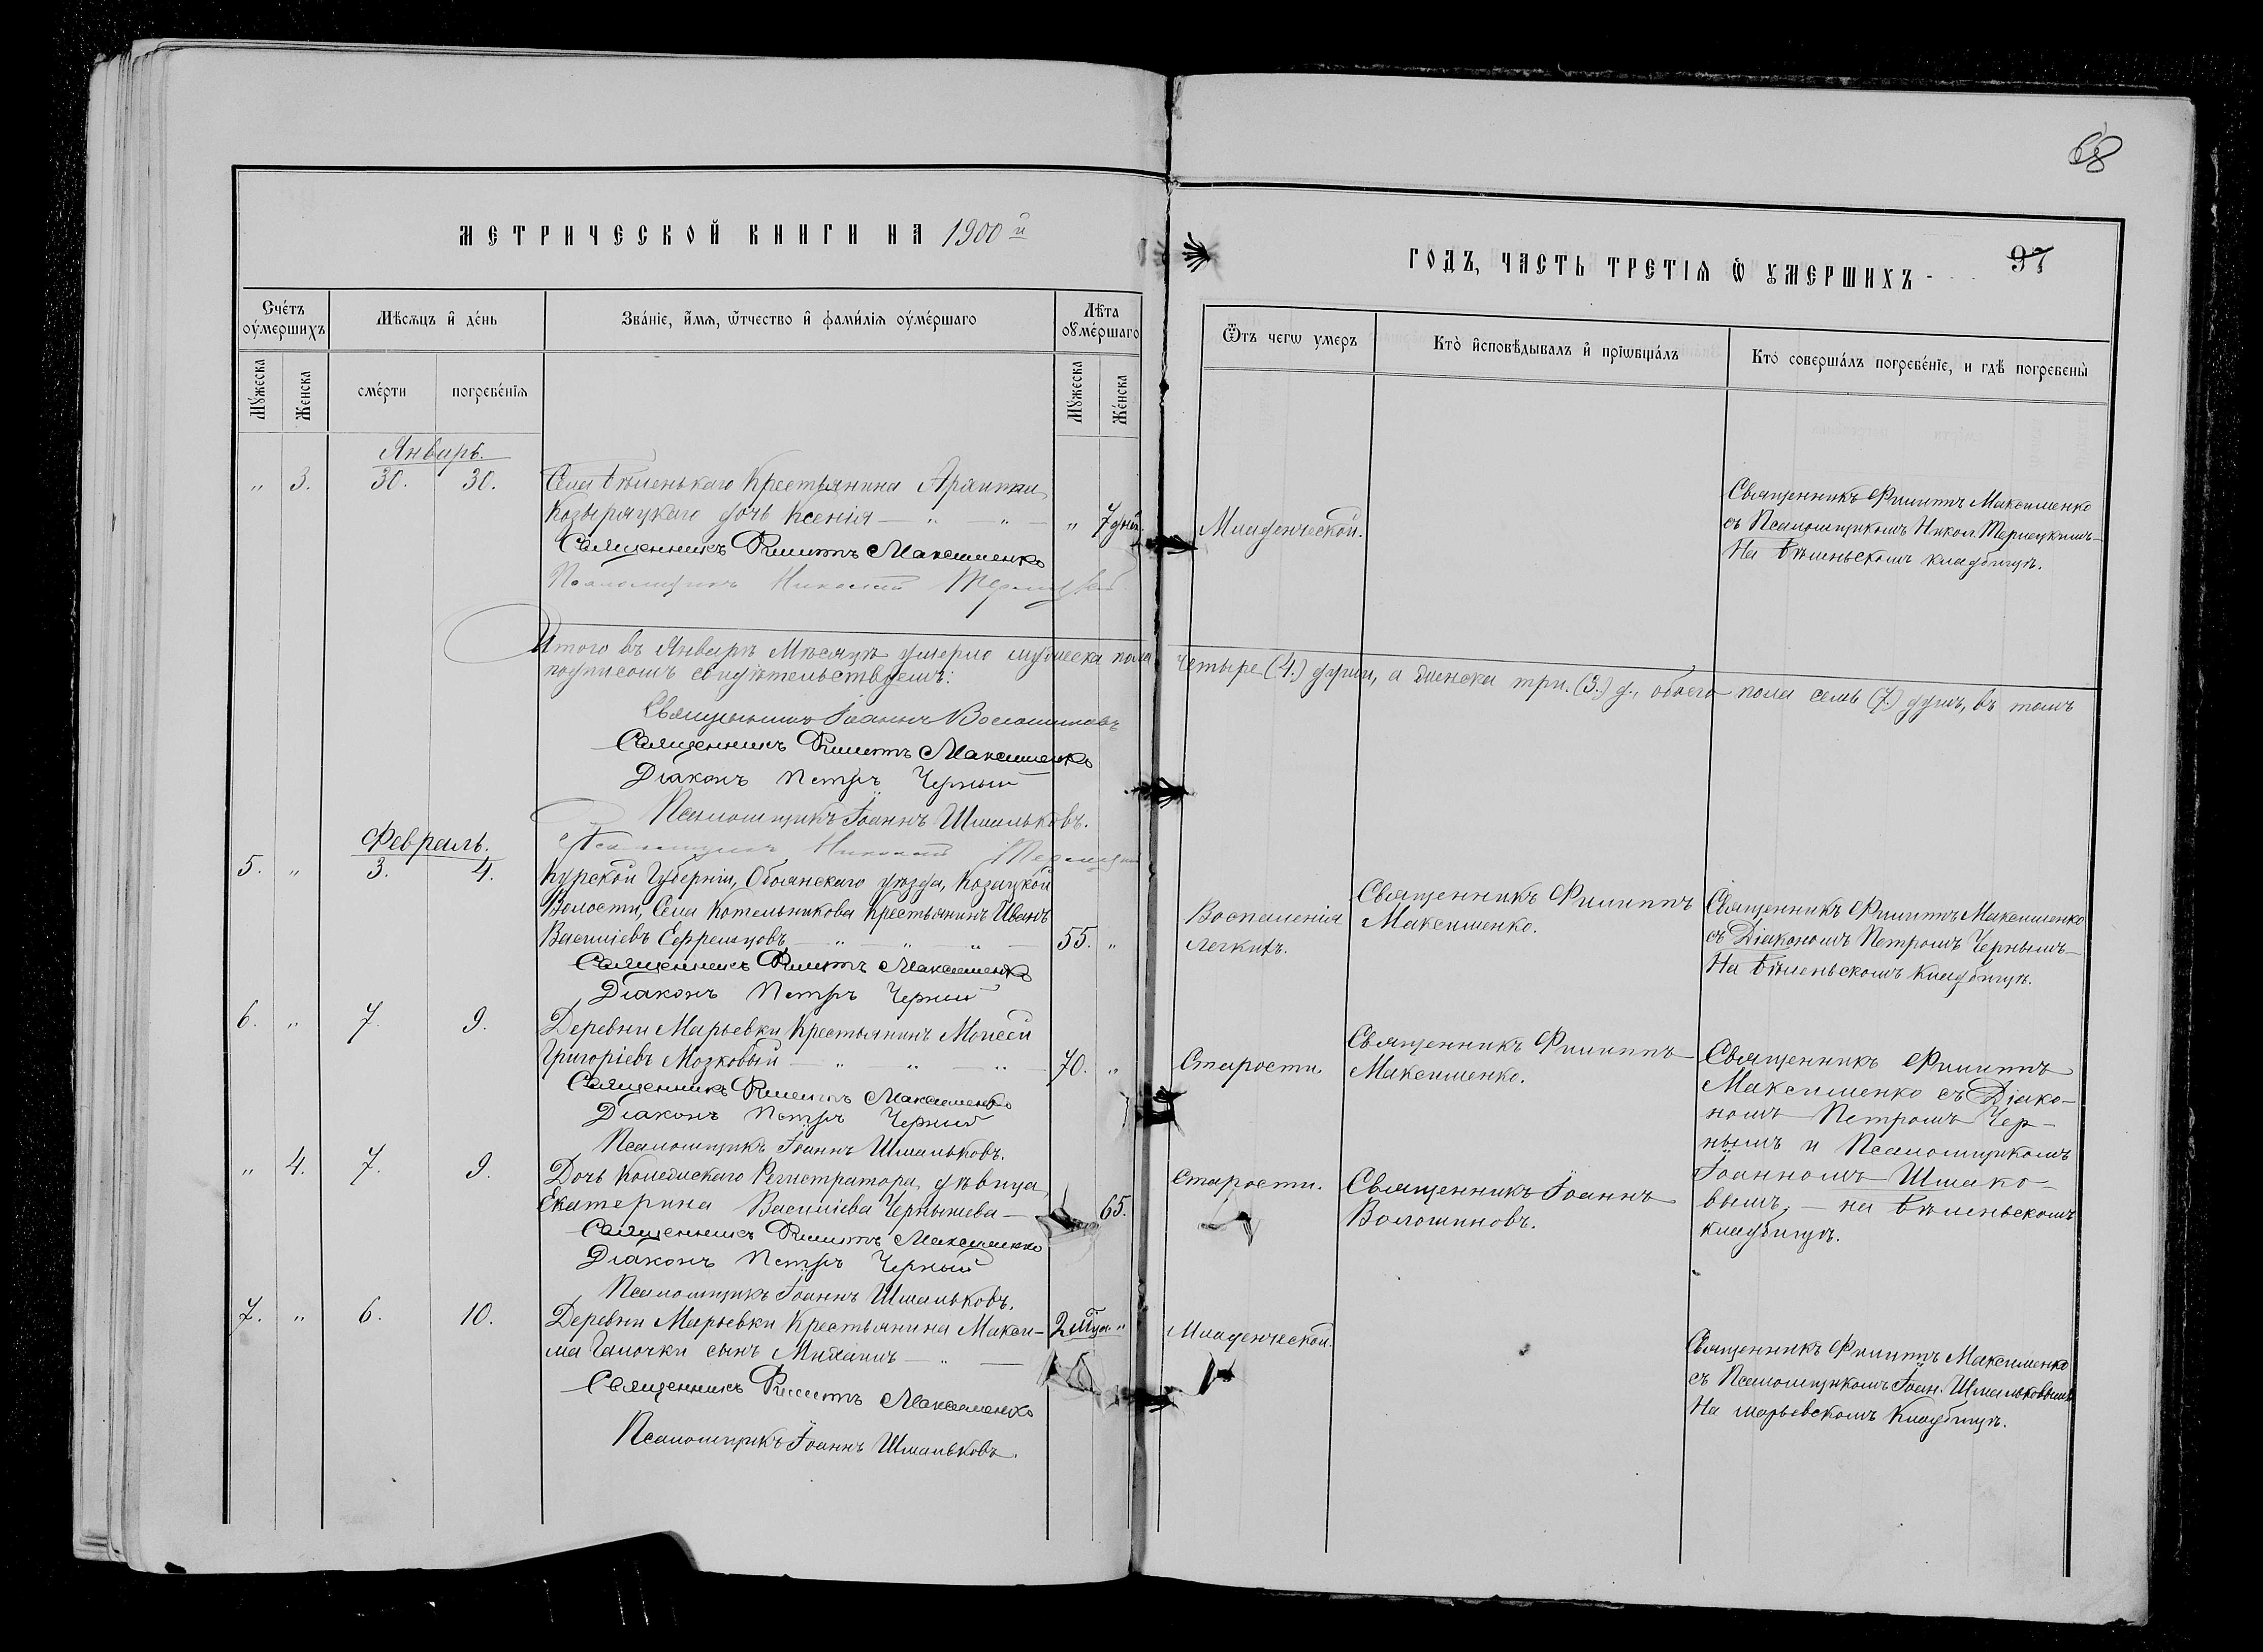 68
МЕТРИЧЕСКОЙ КНИГИ НА 1900й
ГОДЪ, ЧАСТЬ ТРЕТІѦ Ѽ ОУМЕРШИХЪ
97
Сче́тъ оу҆ме́ршихъ
Мѣсѧцъ и҆ де́нь
Зва́ніе, и҆́мѧ, ѻ҆́тчество и҆ фами́лія оу҆ме́ршаго
Лѣта оу҆ме́ршаго
Ѿ чегѡ умеръ
Кто̀ и҆сповѣдывалъ и҆ прїѡбща́лъ
Кто̀ соверша́лъ погребе́ніе, и гдѣ̀ погребены̀
Му́жеска
Же́нска
сме́рти
погребе́нія
Му́жеска
Же́нска
Январь.
" 3. 30. 30. Села Бѣленькаго Крестьянина
Козырацкаго дочь Ксенія — " — " — " 7 дней
Священникъ Филиппъ Максименко
Псаломщикъ Николай
Младенческой.
Священникъ Филиппъ Максименко
съ Псаломщикомъ Никол.
На Бѣленьскомъ кладбищѣ.
Итого въ Январѣ Мѣсяцѣ умерло мужеска пола четыре (4.) души, а женска три. (3.) д., обоего пола семь (7.) душъ, въ томъ
подписомъ свидѣтельствуемъ:
Священникъ Іоаннъ Волошиновъ
Священникъ Филиппъ Максименко
Діаконъ Петръ Черный
Псаломщикъ Іоаннъ Шмальковъ.
Псаломщикъ Николай
Февраль.
5. " 3. 4. Курской Губерніи, Обоянскаго уѣзда, Козацкой
Волости, Села Котельникова Крестьянинъ Иванъ
Василіевъ Ефремцовъ — " — " — " — 55. "
Священникъ Филиппъ Максименко
Діаконъ Петръ Черный
Воспаленія
легкихъ.
Священникъ Филиппъ
Максименко.
Священникъ Филиппъ Максименко
съ Діакономъ Петромъ Чернымъ —
На Бѣленьскомъ кладбищѣ.
6. " 7. 9. Деревни Марьевки Крестьянинъ Моисей
Григоріевъ Мозковый — " — " — " — 70. "
Священникъ Филиппъ Максименко
Діаконъ Петръ Черный
Псаломщикъ Іоаннъ Шмальковъ.
Старости.
Священникъ Филиппъ
Максименко.
Священникъ Филиппъ
Максименко съ Діако-
номъ Петромъ Чер-
нымъ и Псаломщикомъ
Іоанномъ Шмако-
вымъ, — на Бѣленьскомъ
кладбищѣ.
" 4. 7. 9. Дочь Колежскаго Регистратора, дѣвица
Екатерина Василіева Чернышева — 65.
Священникъ Филиппъ Максименко
Діаконъ Петръ Черный
Псаломщикъ Іоаннъ Шмальковъ.
Старости.
Священникъ Іоаннъ
Волошиновъ.
7. " 6. 10. Деревни Марьевки Крестьянина Макси-
ма Галочки сынъ Михаилъ — " — 2 мца "
Священникъ Филиппъ Максименко
Псаломщикъ Іоаннъ Шмальковъ.
Младенческой.
Священникъ Филиппъ Максименко
съ Псаломщикомъ Іоан. Шмальковымъ
На марьевскомъ кладбищѣ.